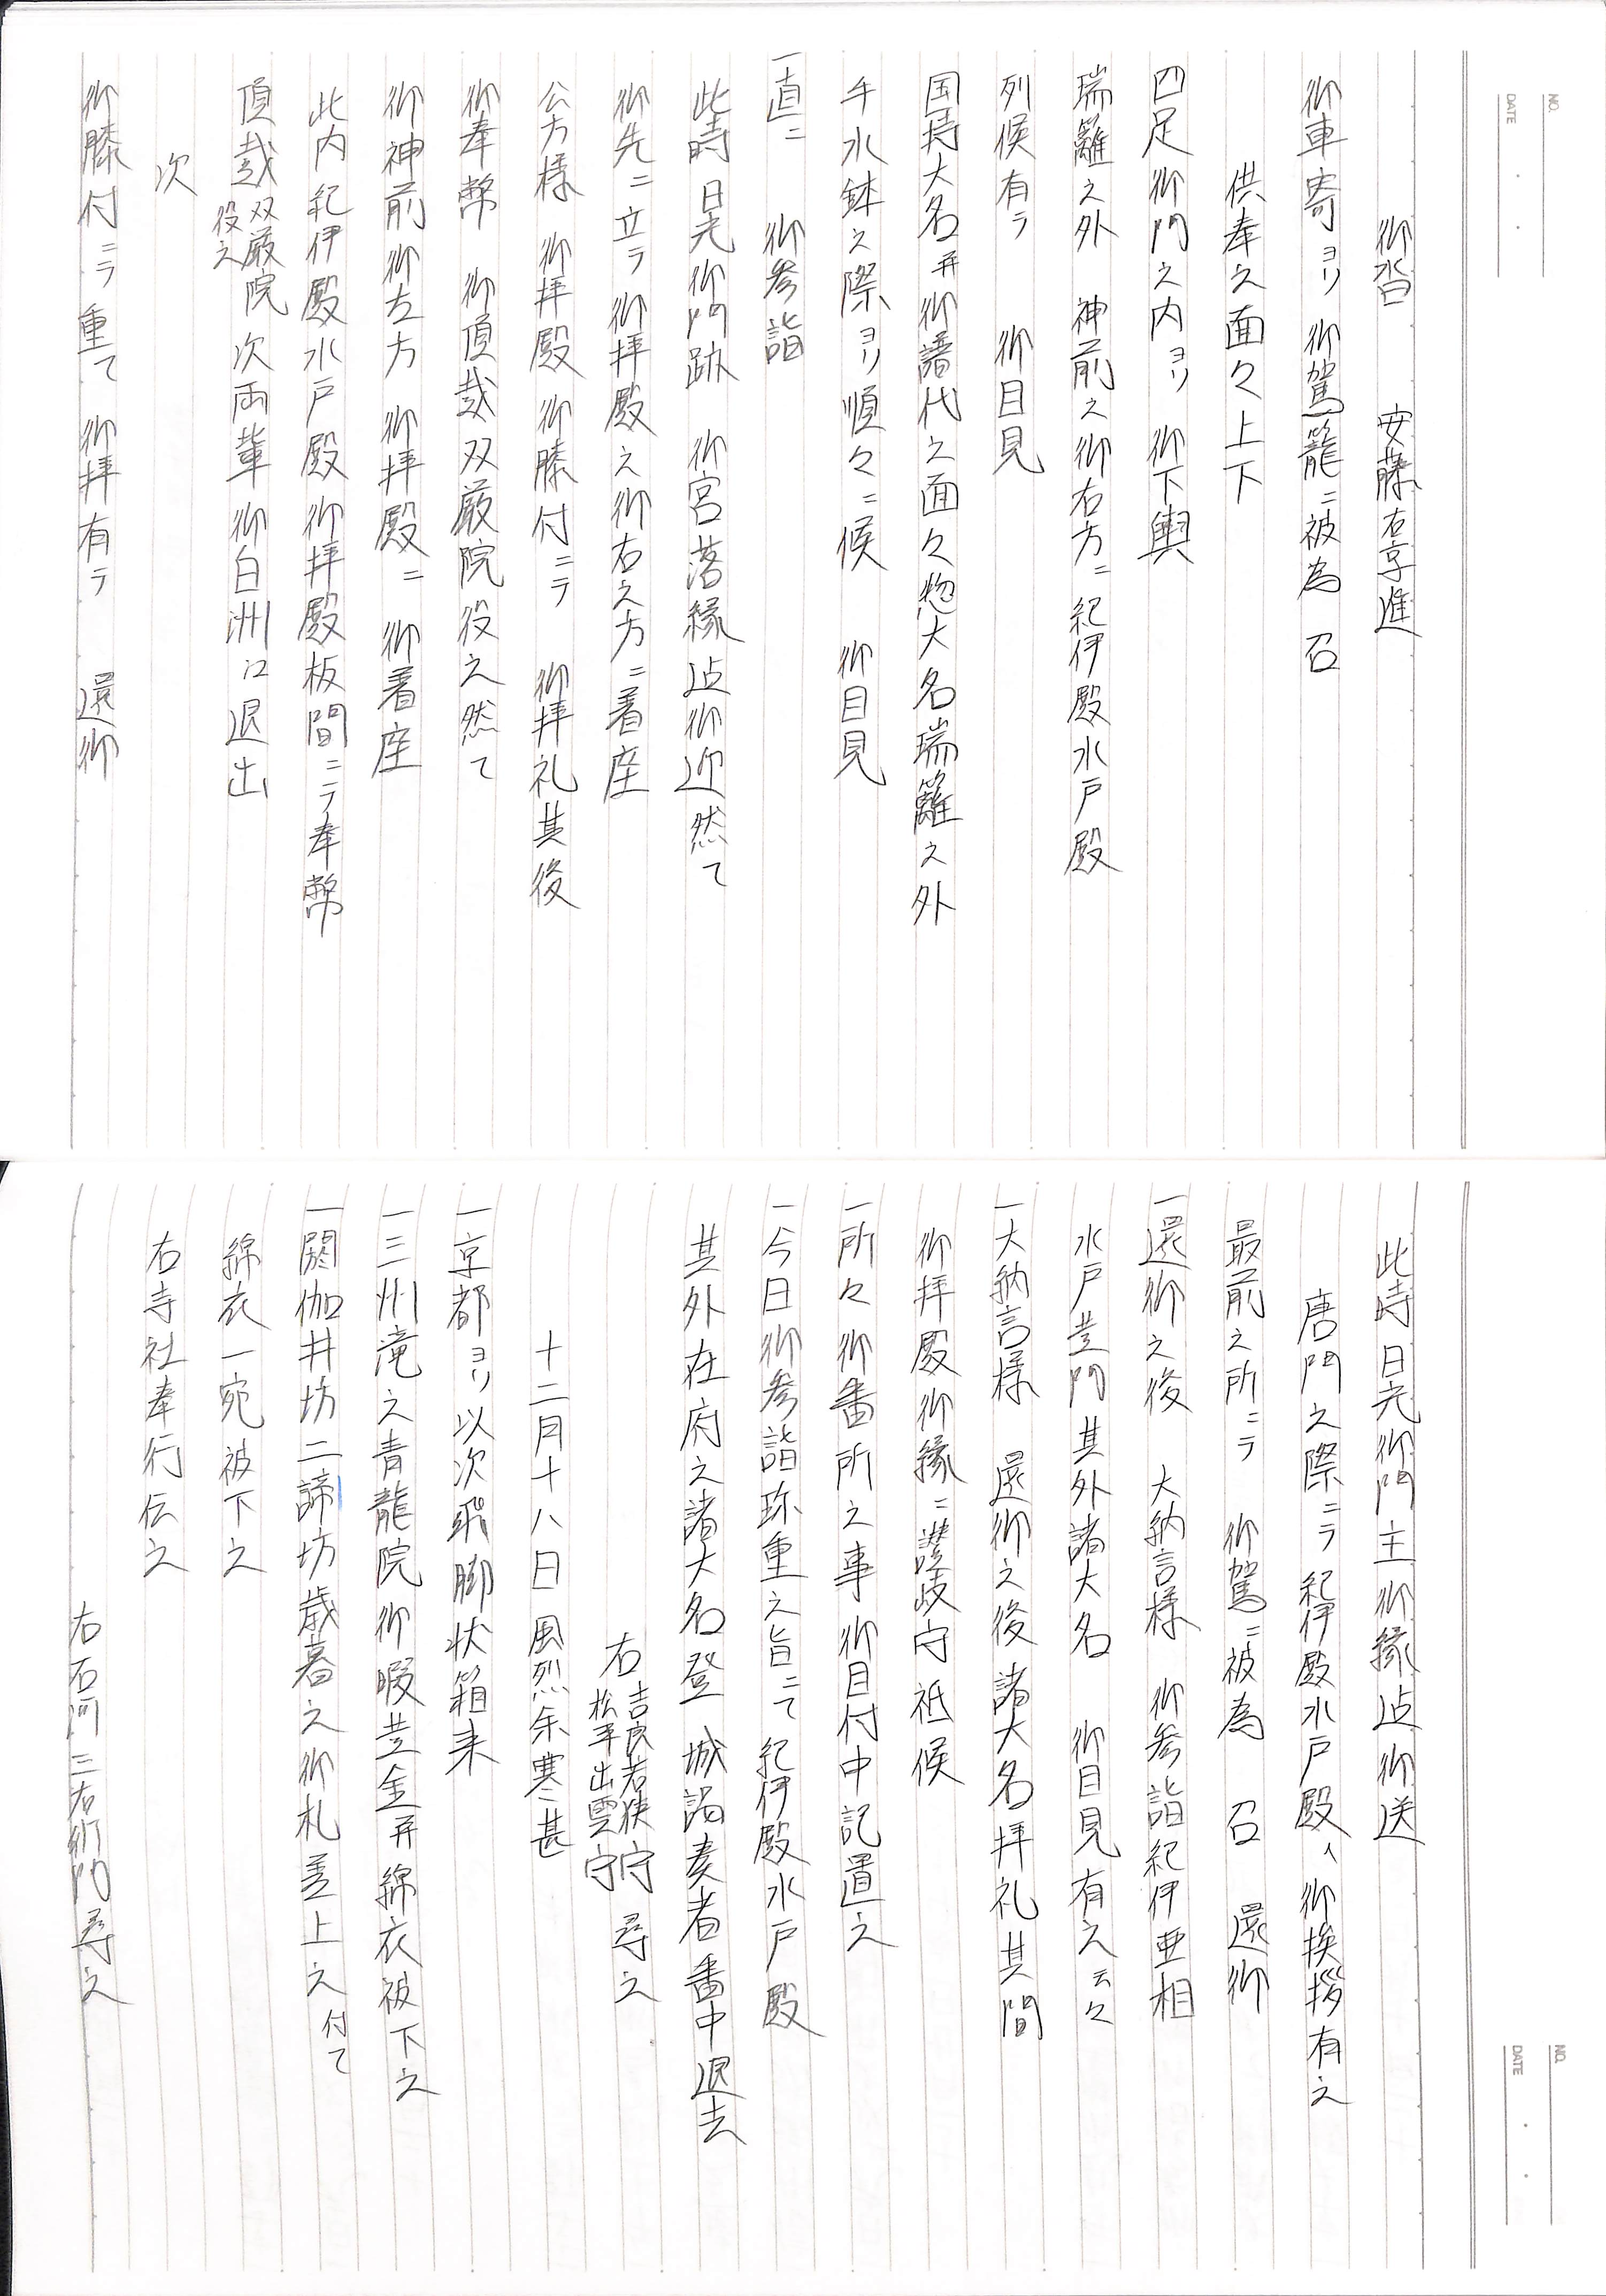 NO.
DATE
御沓　安藤右京進
御車寄ヨリ　御駕籠ニ被為　召
供奉之面々上下
四足御門之内ヨリ　御下輿
瑞籬之外　神前之御右方ニ紀伊殿水戸殿
列候有テ　御目見
国持大名并御譜代之面々惣大名瑞籬之外
手水鉢之際ヨリ順々ニ候　御目見
一直ニ　御参詣
此時日光御門跡　御宮落縁迠御迎然て
御先ニ立テ御拝殿之御右之方ニ着座
公方様　御拝殿　御膝付ニテ　御拝礼其後
御奉幣　御頂戴双厳院役之然て
御神前御左方　御拝殿ニ　御着座
此内紀伊殿水戸殿御拝殿板間ニテ奉幣
頂戴双厳院役之　次両輩御白洲江退出
次
御膝付ニテ重て　御拝有テ　還御
NO.
DATE
此時日光御門主御縁迠御送
唐門之際ニテ紀伊殿水戸殿へ御挨拶有之
最前之所ニテ　御駕ニ被為　召　還御
一還御之後　大納言様　御参詣紀伊亜相
水戸黄門其外諸大名　御目見有之云々
一大納言様　還御之後諸大名拝礼其間
御拝殿御縁ニ讃岐守祗候
一所々御番所之事御目付中記置之
一今日御参詣珍重之旨ニて紀伊殿水戸殿
其外在府之諸大名登　城謁奏者番中退去
右吉良若狭守松平出雲守尋之
十二月十八日風烈余寒甚
一京都ヨリ以次飛脚状箱来
一三州滝之青龍院御暇黄金并綿衣被下之
一閼伽井坊二諦坊歳暮之御札差上之付て
綿衣一宛被下之
右寺社奉行伝之
右石河三右衛門尋之